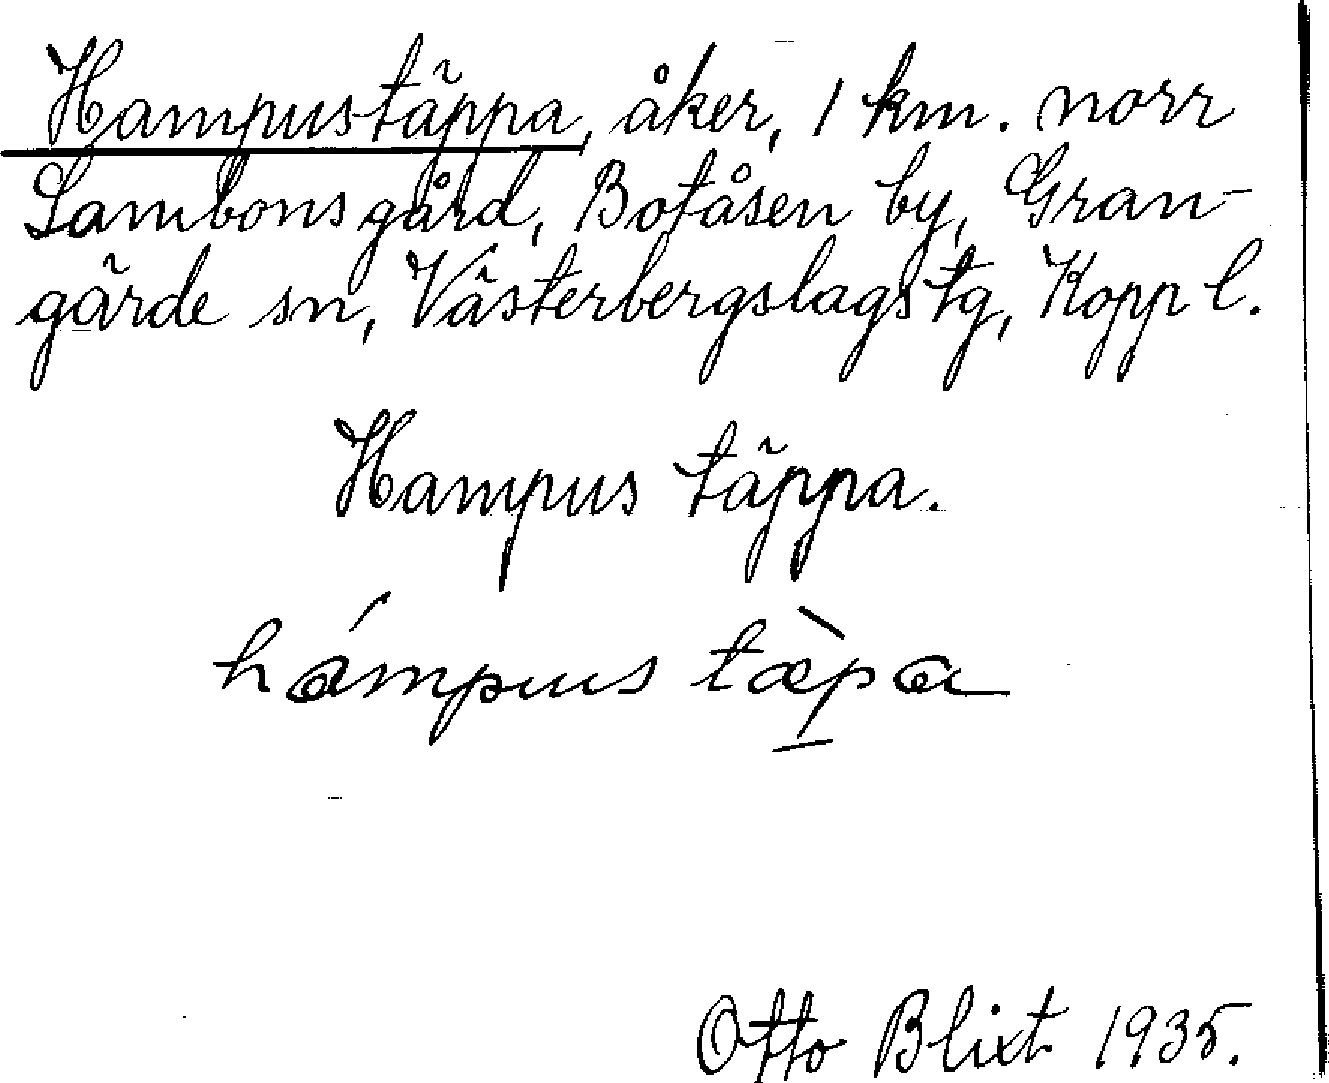 Hampustäppa, åker, 1 km. norr
Lambonsgård, Botåsen by, Gran-
gärde sn, Västerbergslags tg, Kopp l.
Hampus täppa.
hámpus tæ̀pa
Otto Blixt 1935.